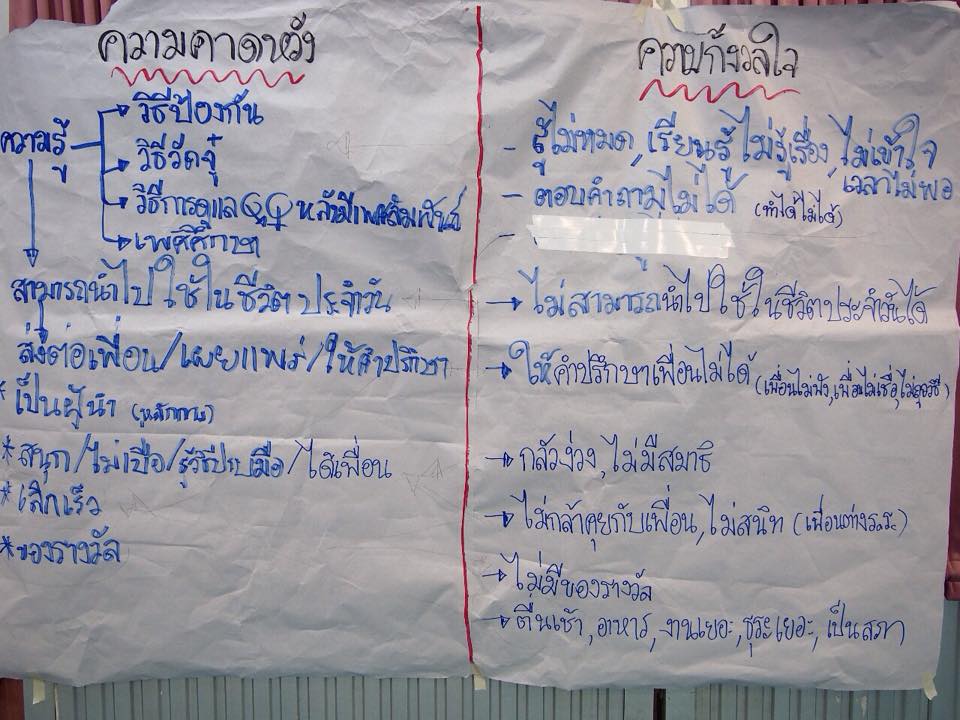 ความคาดหวัง
ความรู้
วิธีป้องกัน
วิธีวัดจุ๋
วิธีการดูแล หลังมีเพศสัมพันธ์
เพศศึกษา
สามารถนำไปใช้ในชีวิตประจำวัน
ส่งต่อเพื่อน/เผยแพร่/ให้คำปรึกษา
* เป็นผู้นำ
* สนุก/ไม่เบื่อ/รู้วิธีปรบมือ/ได้เพื่อน
* เลิกเร็ว
* ของรางวัล
ความกังวลใจ
- รู้ไม่หมด, เรียนรู้ไม่รู้เรื่อง, ไม่เข้าใจ
เวลาไม่พอ
- ตอบคำถามไม่ได้ (ทำได้ไม่ได้)
-
→ ไม่สามารถนำไปใช้ในชีวิตประจำวันได้
→ ให้คำปรึกษาเพื่อนไม่ได้ (เพื่อนไม่ฟัง, เพื่อนไม่เชื่อ, ไม่ถูกวิธี)
→ กลัวง่วง, ไม่มีสมาธิ
→ ไม่กล้าคุยกับเพื่อน, ไม่สนิท (เพื่อนต่างร.ร.)
→ ไม่มีของรางวัล
→ ตื่นเช้า, อาหาร, งานเยอะ, ธุระเยอะ, เป็นสภา